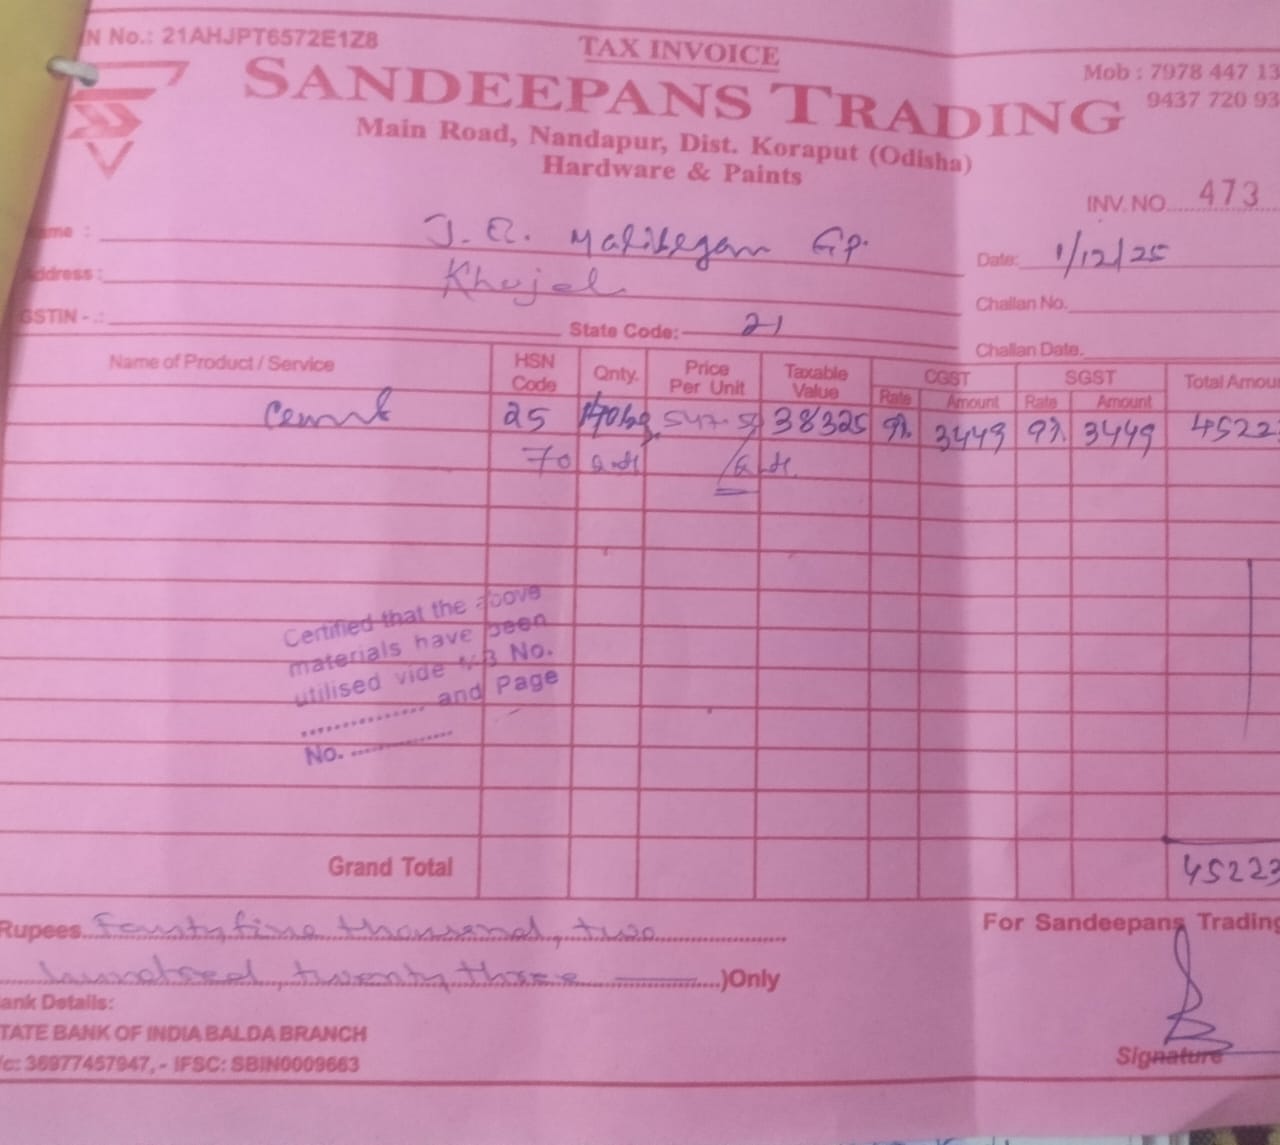 N No.: 21AHJPT6572E1Z8
TAX INVOICE
Mob : 7978 447 13
9437 720 93
SANDEEPANS TRADING
Main Road, Nandapur, Dist. Koraput (Odisha)
Hardware & Paints
INV. NO. 473
ame : J.E. Malibegam Gp.
Date: 1/12/25
ddress :
Challan No.
GSTIN - .:
State Code: 21
Challan Date.
Name of Product / Service HSN Code Qnty. Price Per Unit Taxable Value CGST SGST Total Amou
Rate Amount Rate Amount
Cement 25 547.5 38325 9% 3449 9% 3449 4522
70
Certified that the above
materials have been
utilised vide M.B No.
.............. and Page
No. ..............
Grand Total 45223
Rupees Fourty five thousand, two
hundred, twenty three )Only
For Sandeepans Trading
ank Details:
TATE BANK OF INDIA BALDA BRANCH
/c: 36977457947, - IFSC: SBIN0009663
Signature